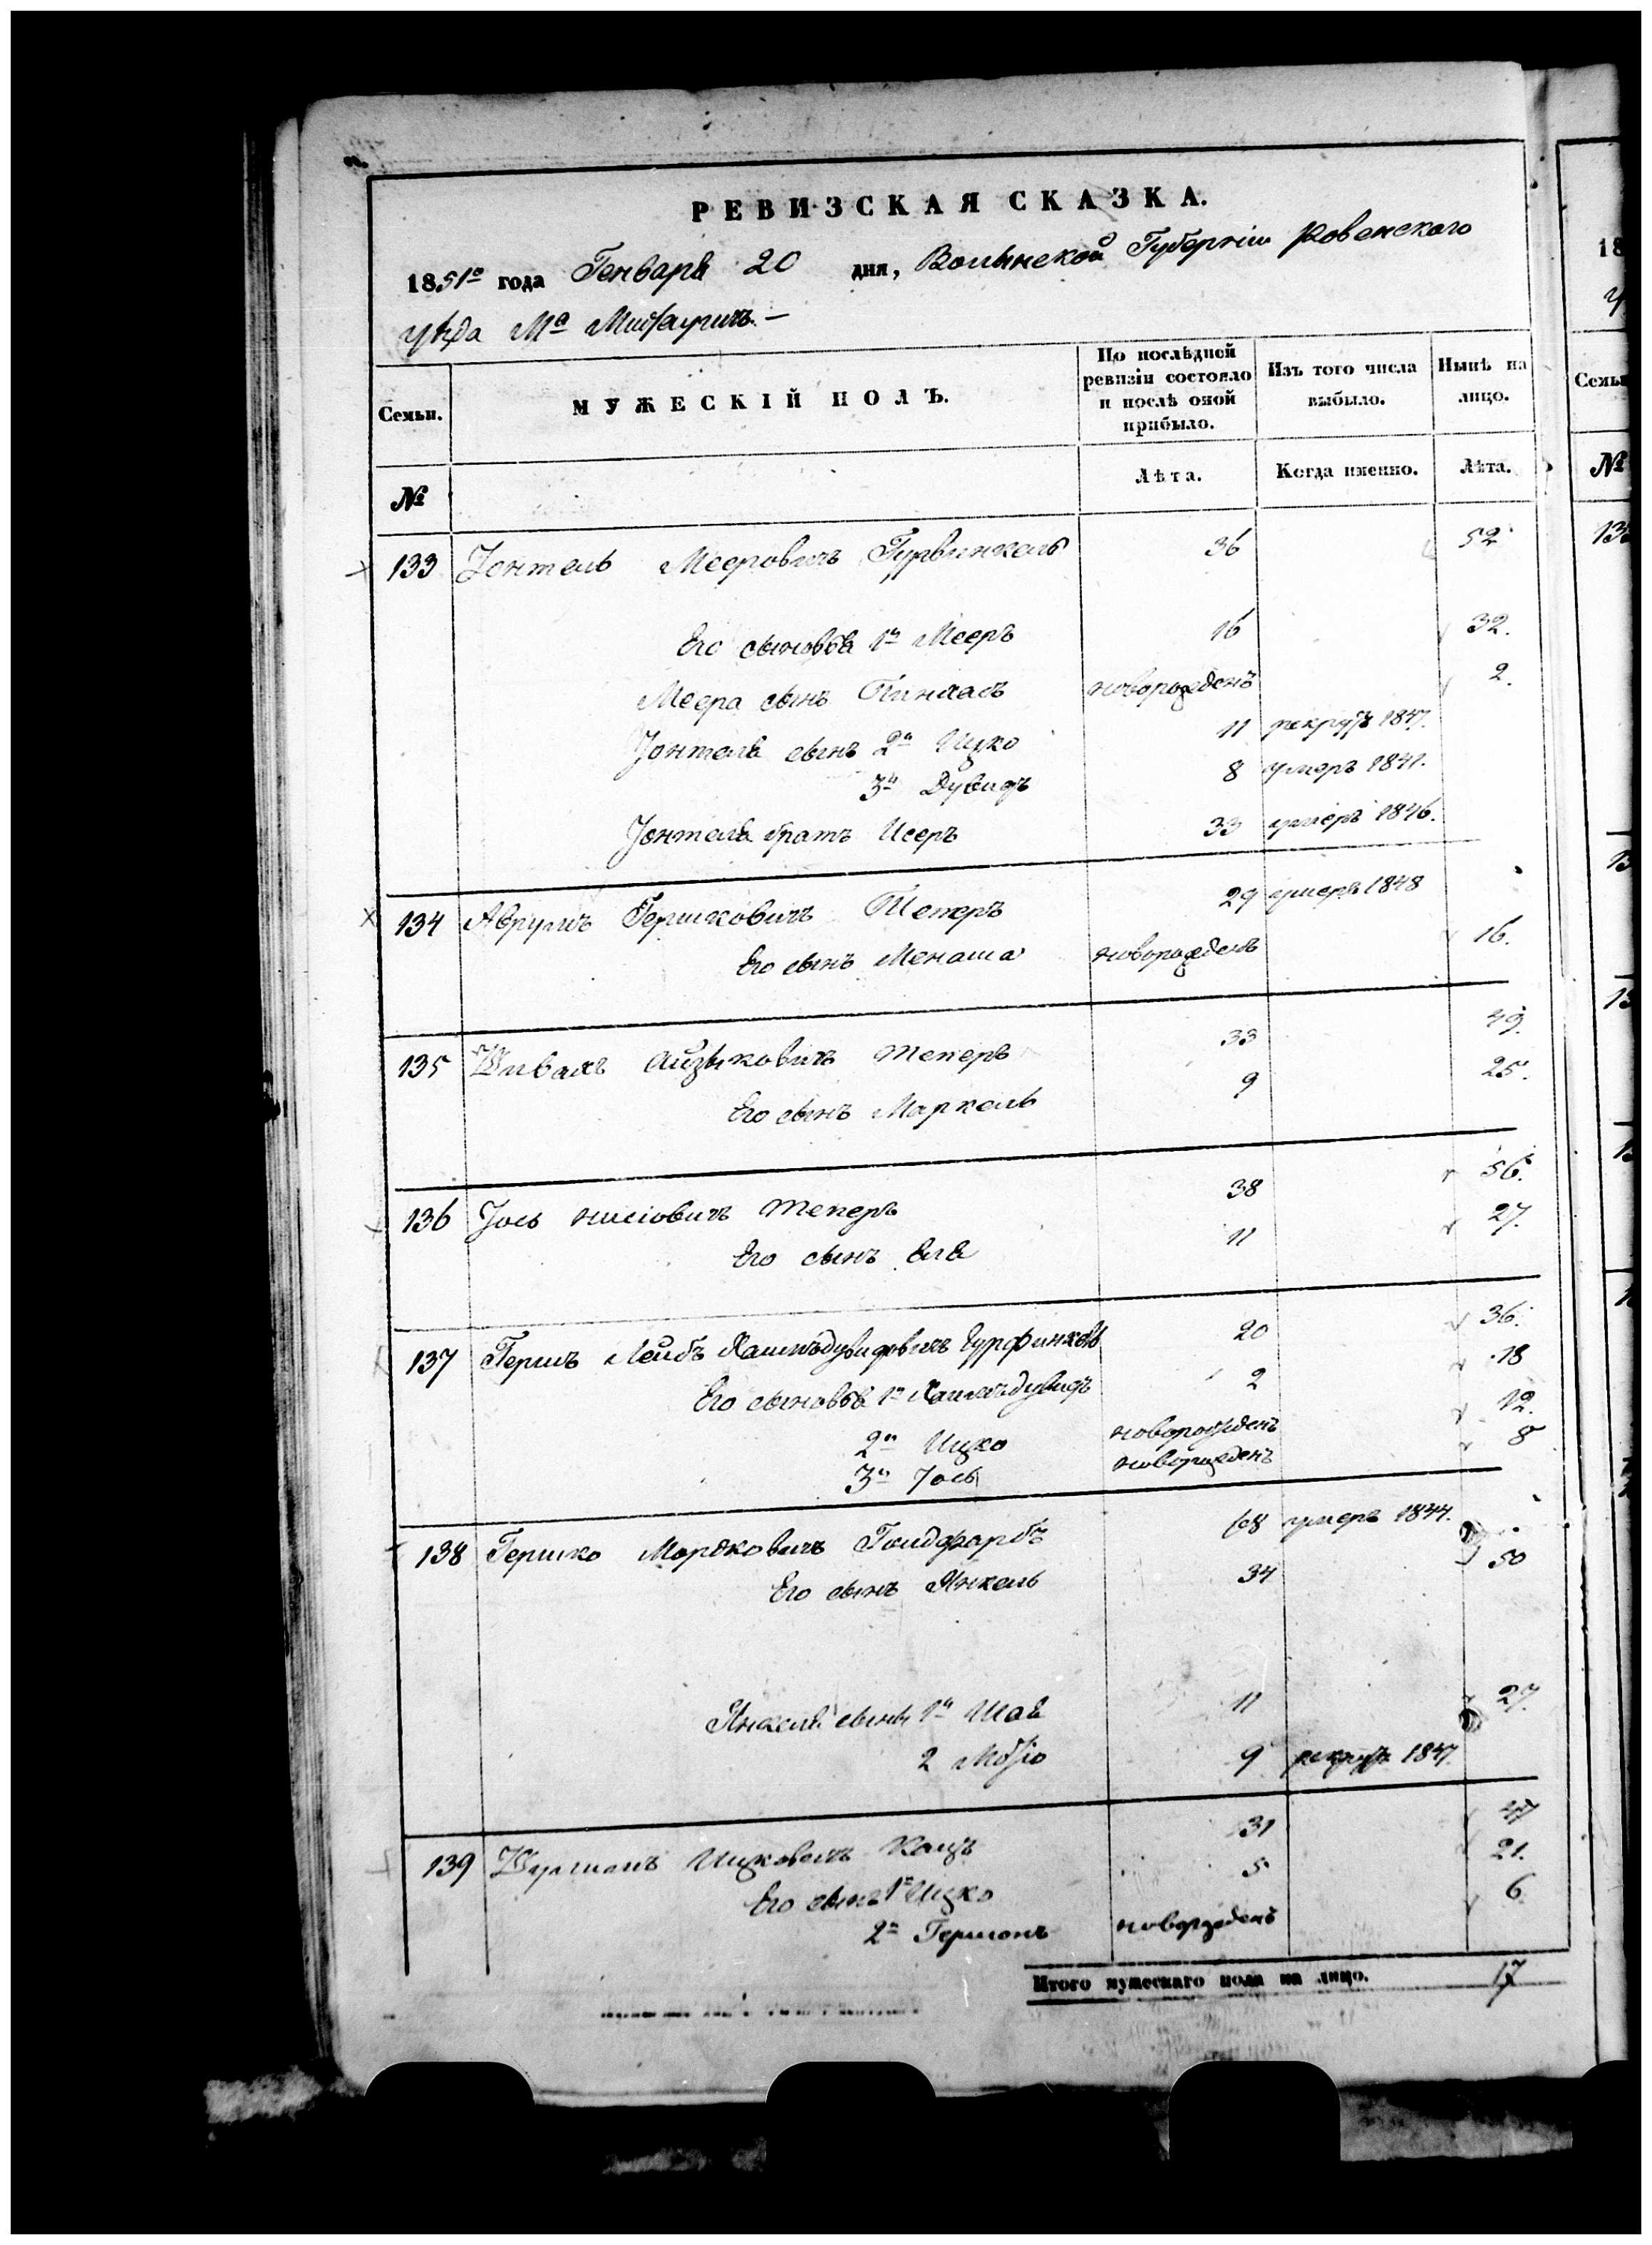 РЕВИЗСКАЯ СКАЗКА.
1851го года Генваря 20 дня, Волынской Губерніи Ровенского
уѣзда Мa
Семьи. МУЖЕСКІЙ ПОЛЪ. По послѣдней ревизіи состояло и послѣ оной прибыло. Изъ того числа выбыло. Нынѣ на лицо.
№ Лѣта. Когда именно. Лѣта.
133 Іонтель Мееровичъ Гурвинкель 36 52
Его сыновья 1й Мееръ 16 32.
Меера сынъ Пинхасъ новорожденъ 2.
Іонтеля сынъ 2й Ицко 11 рекрутъ 1847.
3й Дувидъ 8 умеръ 1841.
Іонтеля братъ Исеръ 33 умеръ 1846.
134 Аврумъ Гершковичъ Теперъ 29 умеръ 1848
Его сынъ Менаша новорожденъ 16.
135 Шивахъ Айзиковичъ Теперъ 33 49.
Его сынъ Маркель 9 25.
136 Іось Нисіовичъ Теперъ 38 56.
Его сынъ Еля 11 27.
137 Гершъ Лейбъ Хаимъдувидовичъ 20 36.
Его сыновья 1й Хаимъдувидъ 2 18
2й Ицко новорожденъ 12.
3й Іось новорожденъ 8
138 Гершко Мордковичъ Голдфарбъ 68 умеръ 1844.
Его сынъ Янкель 34 50
Янкеля сынъ 1й Шая 11 27.
2 9 рекрутъ 1847.
139 Шулимъ Ицковичъ Кацъ 31 47
Его сынъ 1й Ицко 5 21.
2й Гершонъ новорожденъ 6
Итого мужескаго пола на лицо. 17
18
Семьи
№